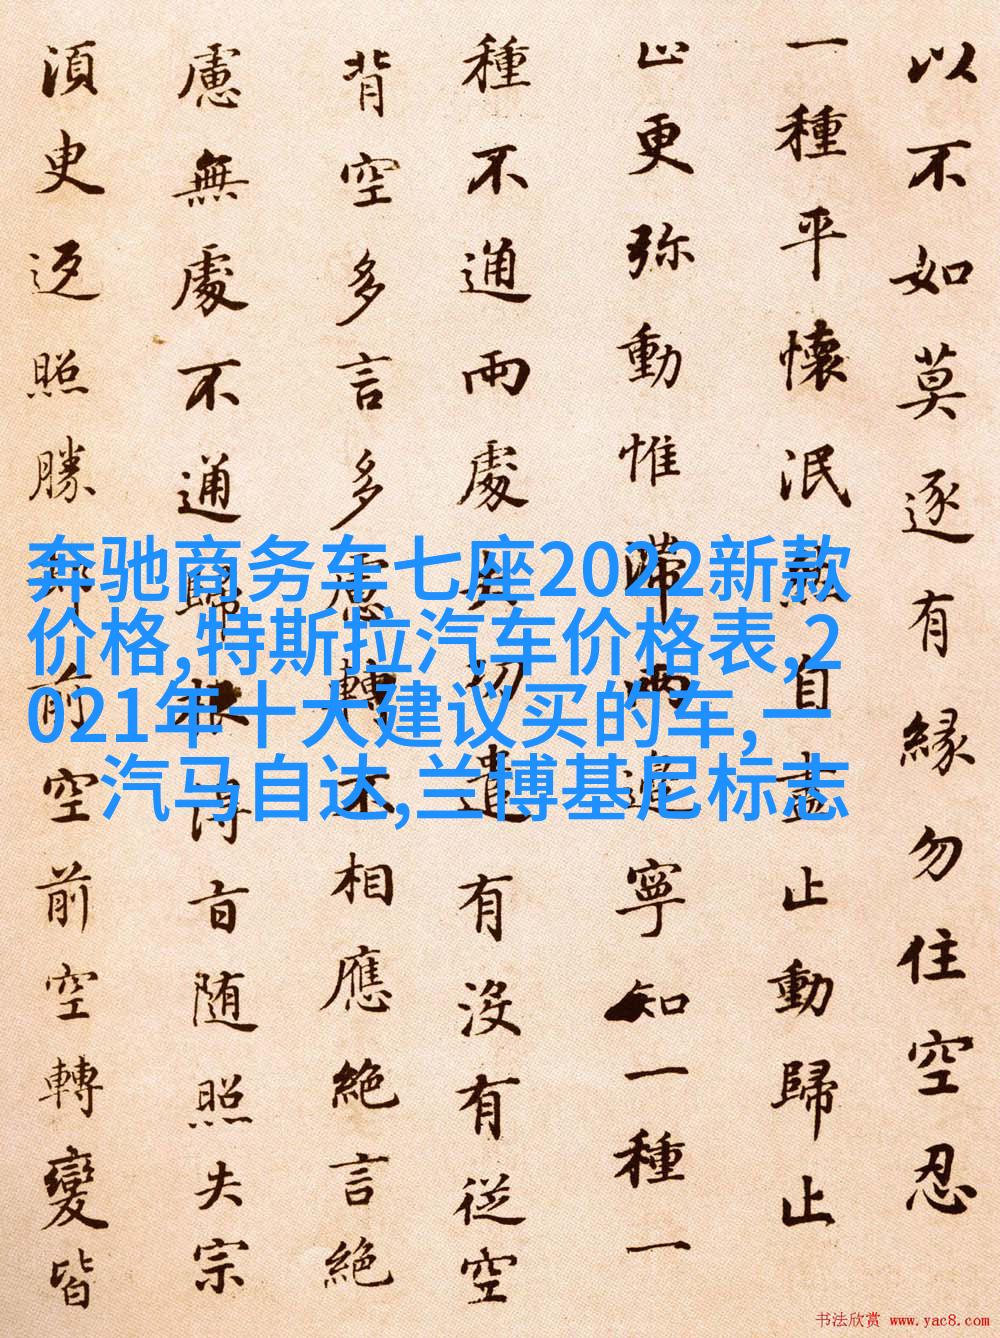 以不如莫逐有緣勿住空忍
一種平懷泯然自盡止動歸止
止更弥動惟滞兩邊寧知一種一
種不通兩處失功遣有没有從空
背空多言多慮轉不相應絶言絶
慮無處不通歸根得旨随照失宗
須臾返照勝却前空前空轉變皆
奔驰商务车七座2022新款
价格,特斯拉汽车价格表,2
021年十大建议买的车,一
汽马自达,兰博基尼标志
书法欣赏 www.yac8.com